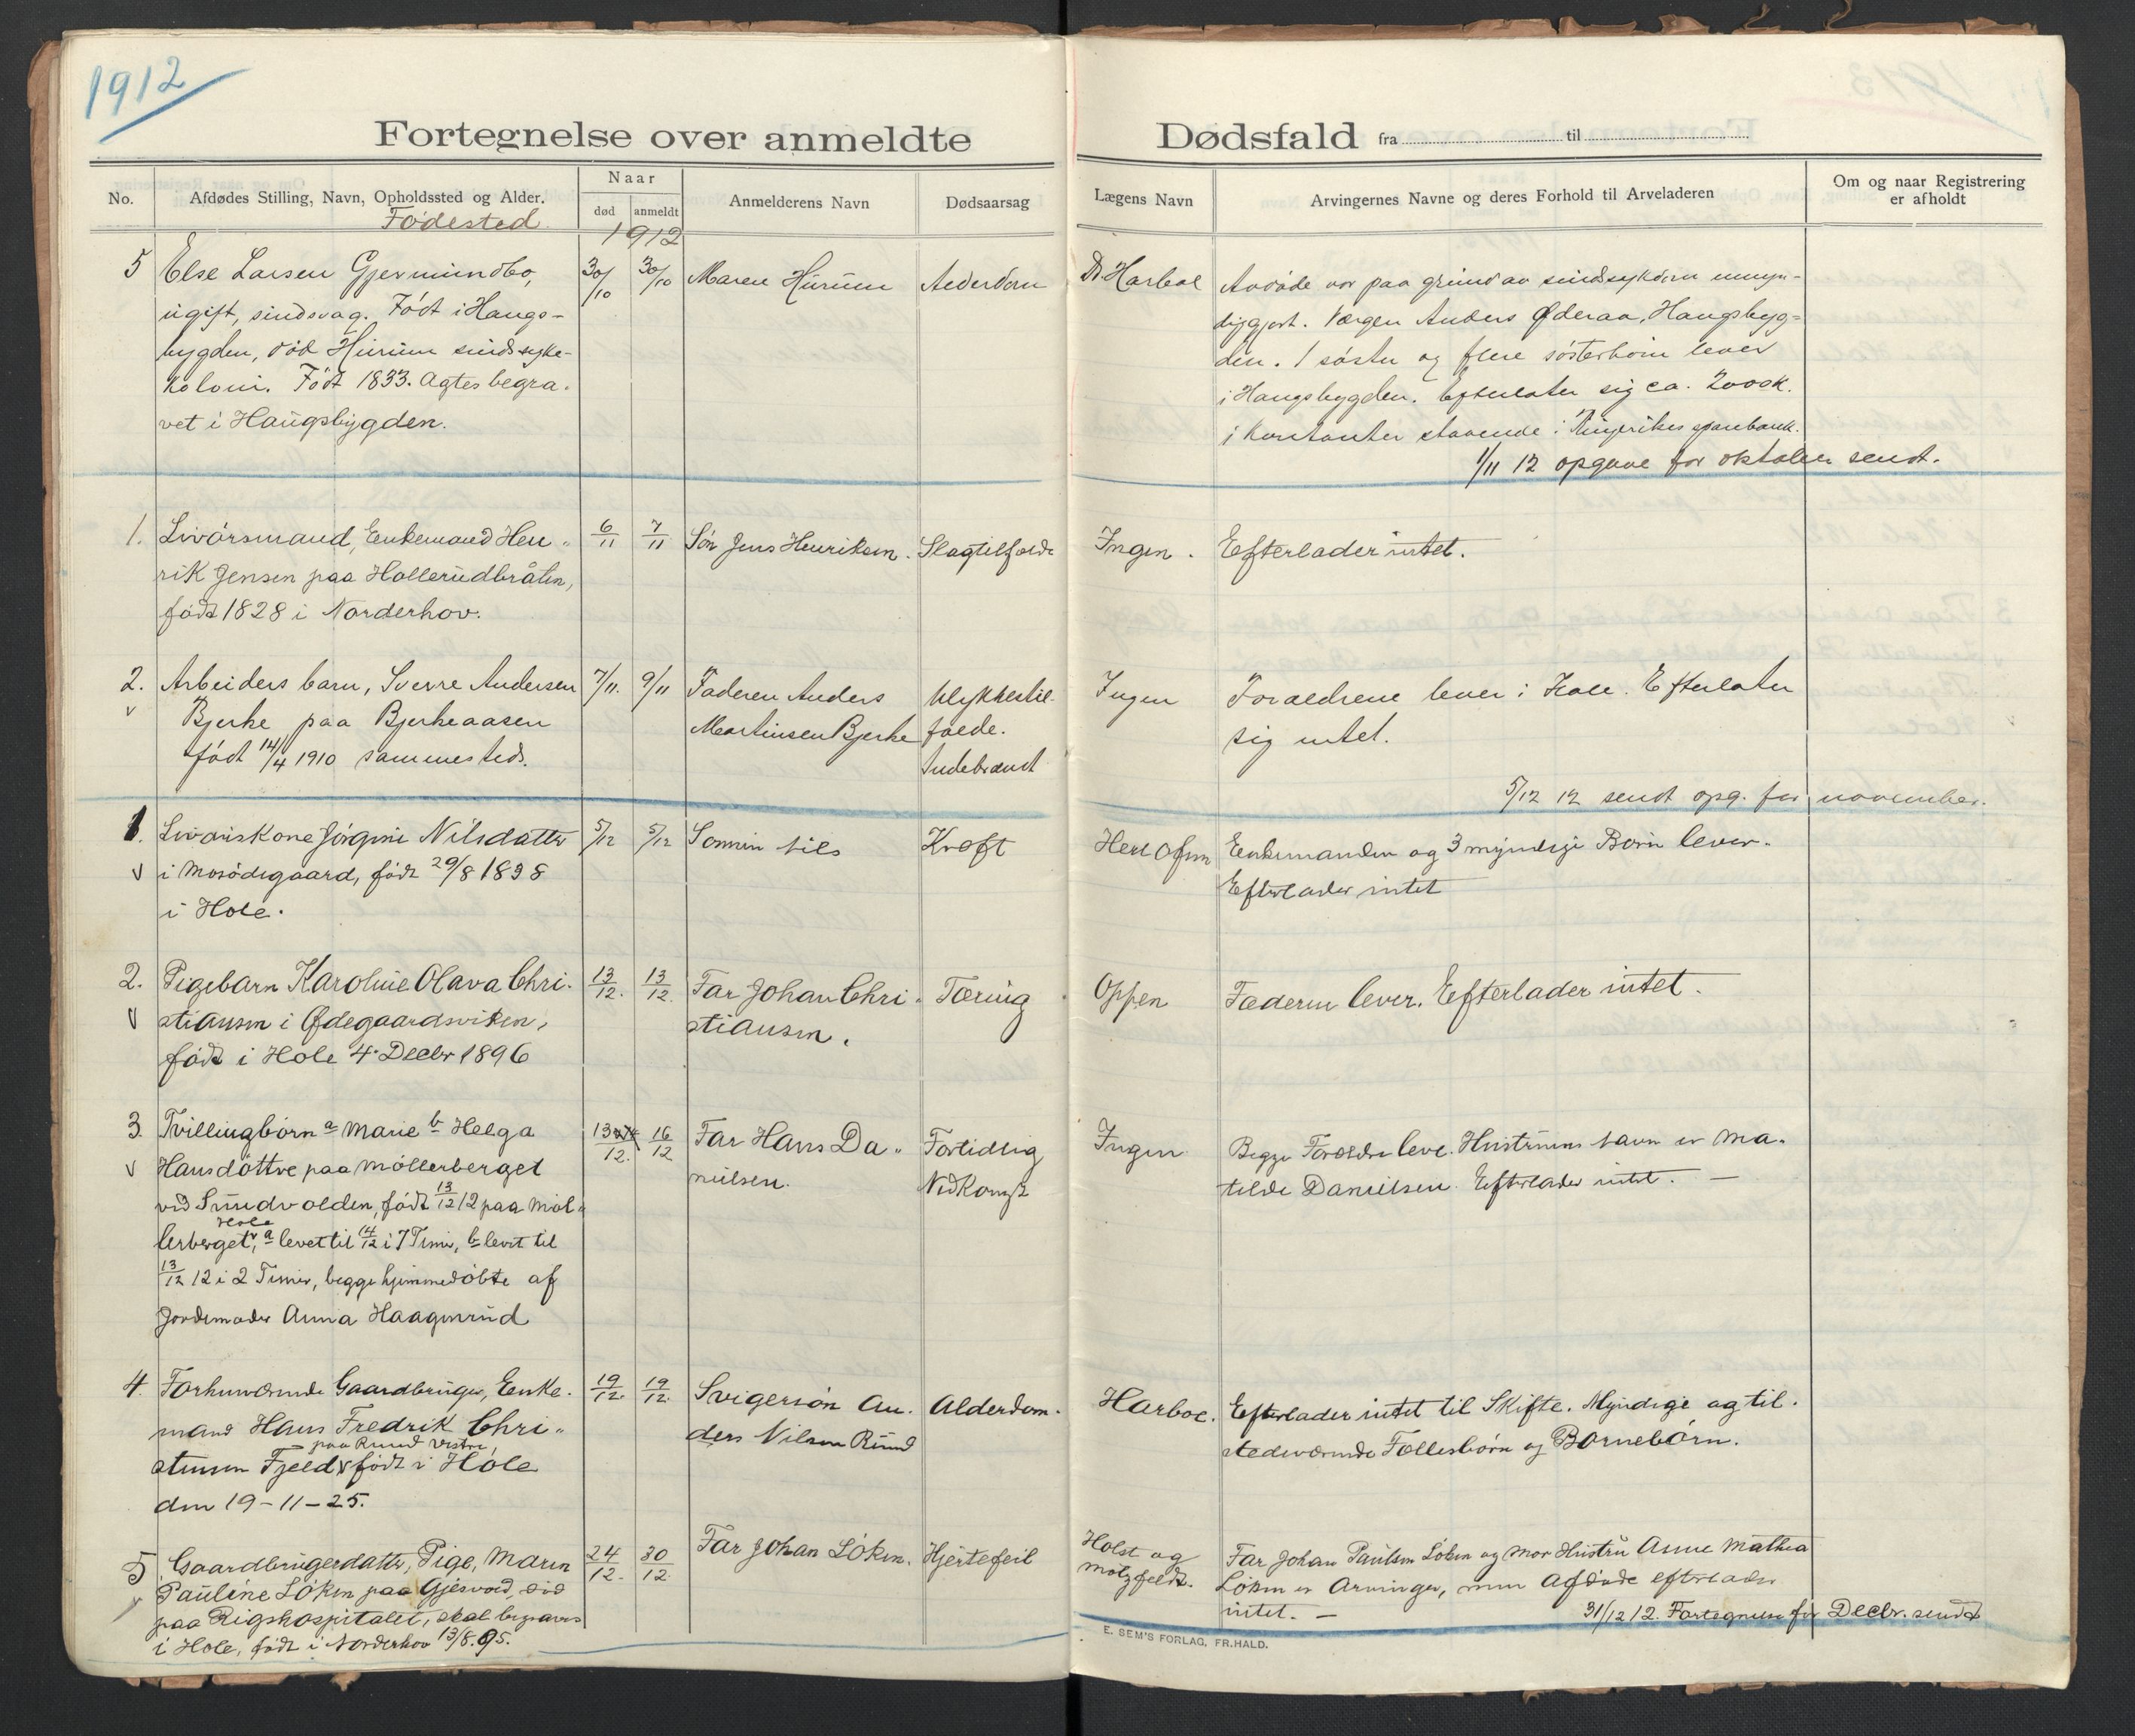 1912
Fortegnelse over anmeldte Dødsfald fra til
No.
Afdødes Stilling, Navn, Opholdssted og Alder.
Fødested
Naar
død
anmeldt
1912
Anmelderens Navn
Dødsaarsag
Lægens Navn
Arvingernes Navne og deres Forhold til Arveladeren
Om og naar Registrering
er afholdt
5
Else Larsen Gjermundbo,
ugift, sindssvag. Født i Haugs-
bygden, død Hurum sindssyke-
koloni. Født 1833. Agtes begra-
vet i Haugsbygden.
30/10
30/10
Maren Hurum
Alderdom
Dr. Harboe
Avdøde var paa grund av sindssykdom umyn-
diggjort. Værgen Anders Øderaa, Haugsbyg-
den. 1 søster og flere søsterbørn lever
i Haugsbygden. Efterlater sig ca. 2000 k.
i kontanter staaende i Ringerikes sparebank.
1/11 12 opgave for oktober sendt.
1.
Livørsmand, Enkemand Hen-
rik Jensen paa Hollerudbråten,
født 1828 i Norderhov.
6/11
7/11
Søn Jens Henriksen.
Slagtilfælde
Ingen.
Efterlader intet.
2.
v
Arbeiders barn, Sverre Andersen
Bjerke paa Bjerkeaasen
født 14/4 1910 sammesteds.
7/11.
9/11
Faderen Anders
Martinsen Bjerke
Ulykkestil-
fælde.
Indebrændt
Ingen
Forældrene lever i Hole. Efterlater
sig intet.
5/12 12 sendt opg. for november.
1.
v
Livøriskone Jørgine Nilsdatter
i Mosødegaard, født 29/8 1838
i Hole.
5/12
5/12
Sønnen Nils
Kræft
Herlofsen
Enkemanden og 3 myndige Børn lever.
Efterlader intet
2.
v
Pigebarn Karoline Olava Chri-
stiansen i Ødegaardsviken,
født i Hole 4. Decbr 1896
13/12.
13/12.
Far Johan Chri-
stiansen.
Tæring
Oppen
Faderen lever. Efterlader intet.
3.
v
Tvillingbørn a Marie b Helga
Hansdøttre paa Møllerberget
ved Sundvolden, født 13/12 12 paa Møl-
Hole
lerberget v, a levet til 14/12 i 7 Timer, b levet til
13/12 12 i 2 Timer, begge hjemmedøbte af
Jordemoder Anna Haagenrud
13/12.
16/12
Far Hans Da-
nielsen.
Fortidlig
Nedkomst
Ingen
Begge Forældre leve. Hustruens Navn er Ma-
tilde Danielsen. Efterlader intet. —
4.
Forhenværende Gaardbruger, Enke-
mand Hans Fredrik Chri-
paa Rund vestre,
stensen Fjeld v født i Hole
den 19-11-25.
19/12.
19/12.
Svigersøn An-
ders Nilsen Rund
Alderdom.
Harboe.
Efterlader intet til Skifte. Myndige og til-
stedeværende Fællesbørn og Børnebørn.
5.
v
Gaardbrugerdatter, Pige, Maren
Pauline Løken paa Gjesvold, død
paa Rigshospitalet, skal begraves
i Hole, født i Norderhov 13/8.95.
24/12.
30/12.
Far Johan Løken.
Hjertefeil
Holst og
Motzfeldt.
Far Johan Paulsen Løken og mor Hustru Anne Mathea
Løken er Arvinger, men Afdøde efterlader
intet. —
31/12 12. Fortegnelse for Decbr. sendt
E. SEM'S FORLAG, FR.HALD.